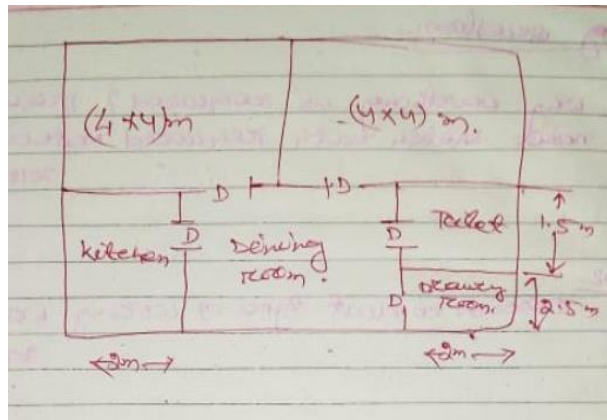 (4 x 4)m
(4 x 4) m.
D
D
Kitchen
D
Dining
room.
D
Toilet
1.5m
D
Drawing
room.
2.5m
2m
2m